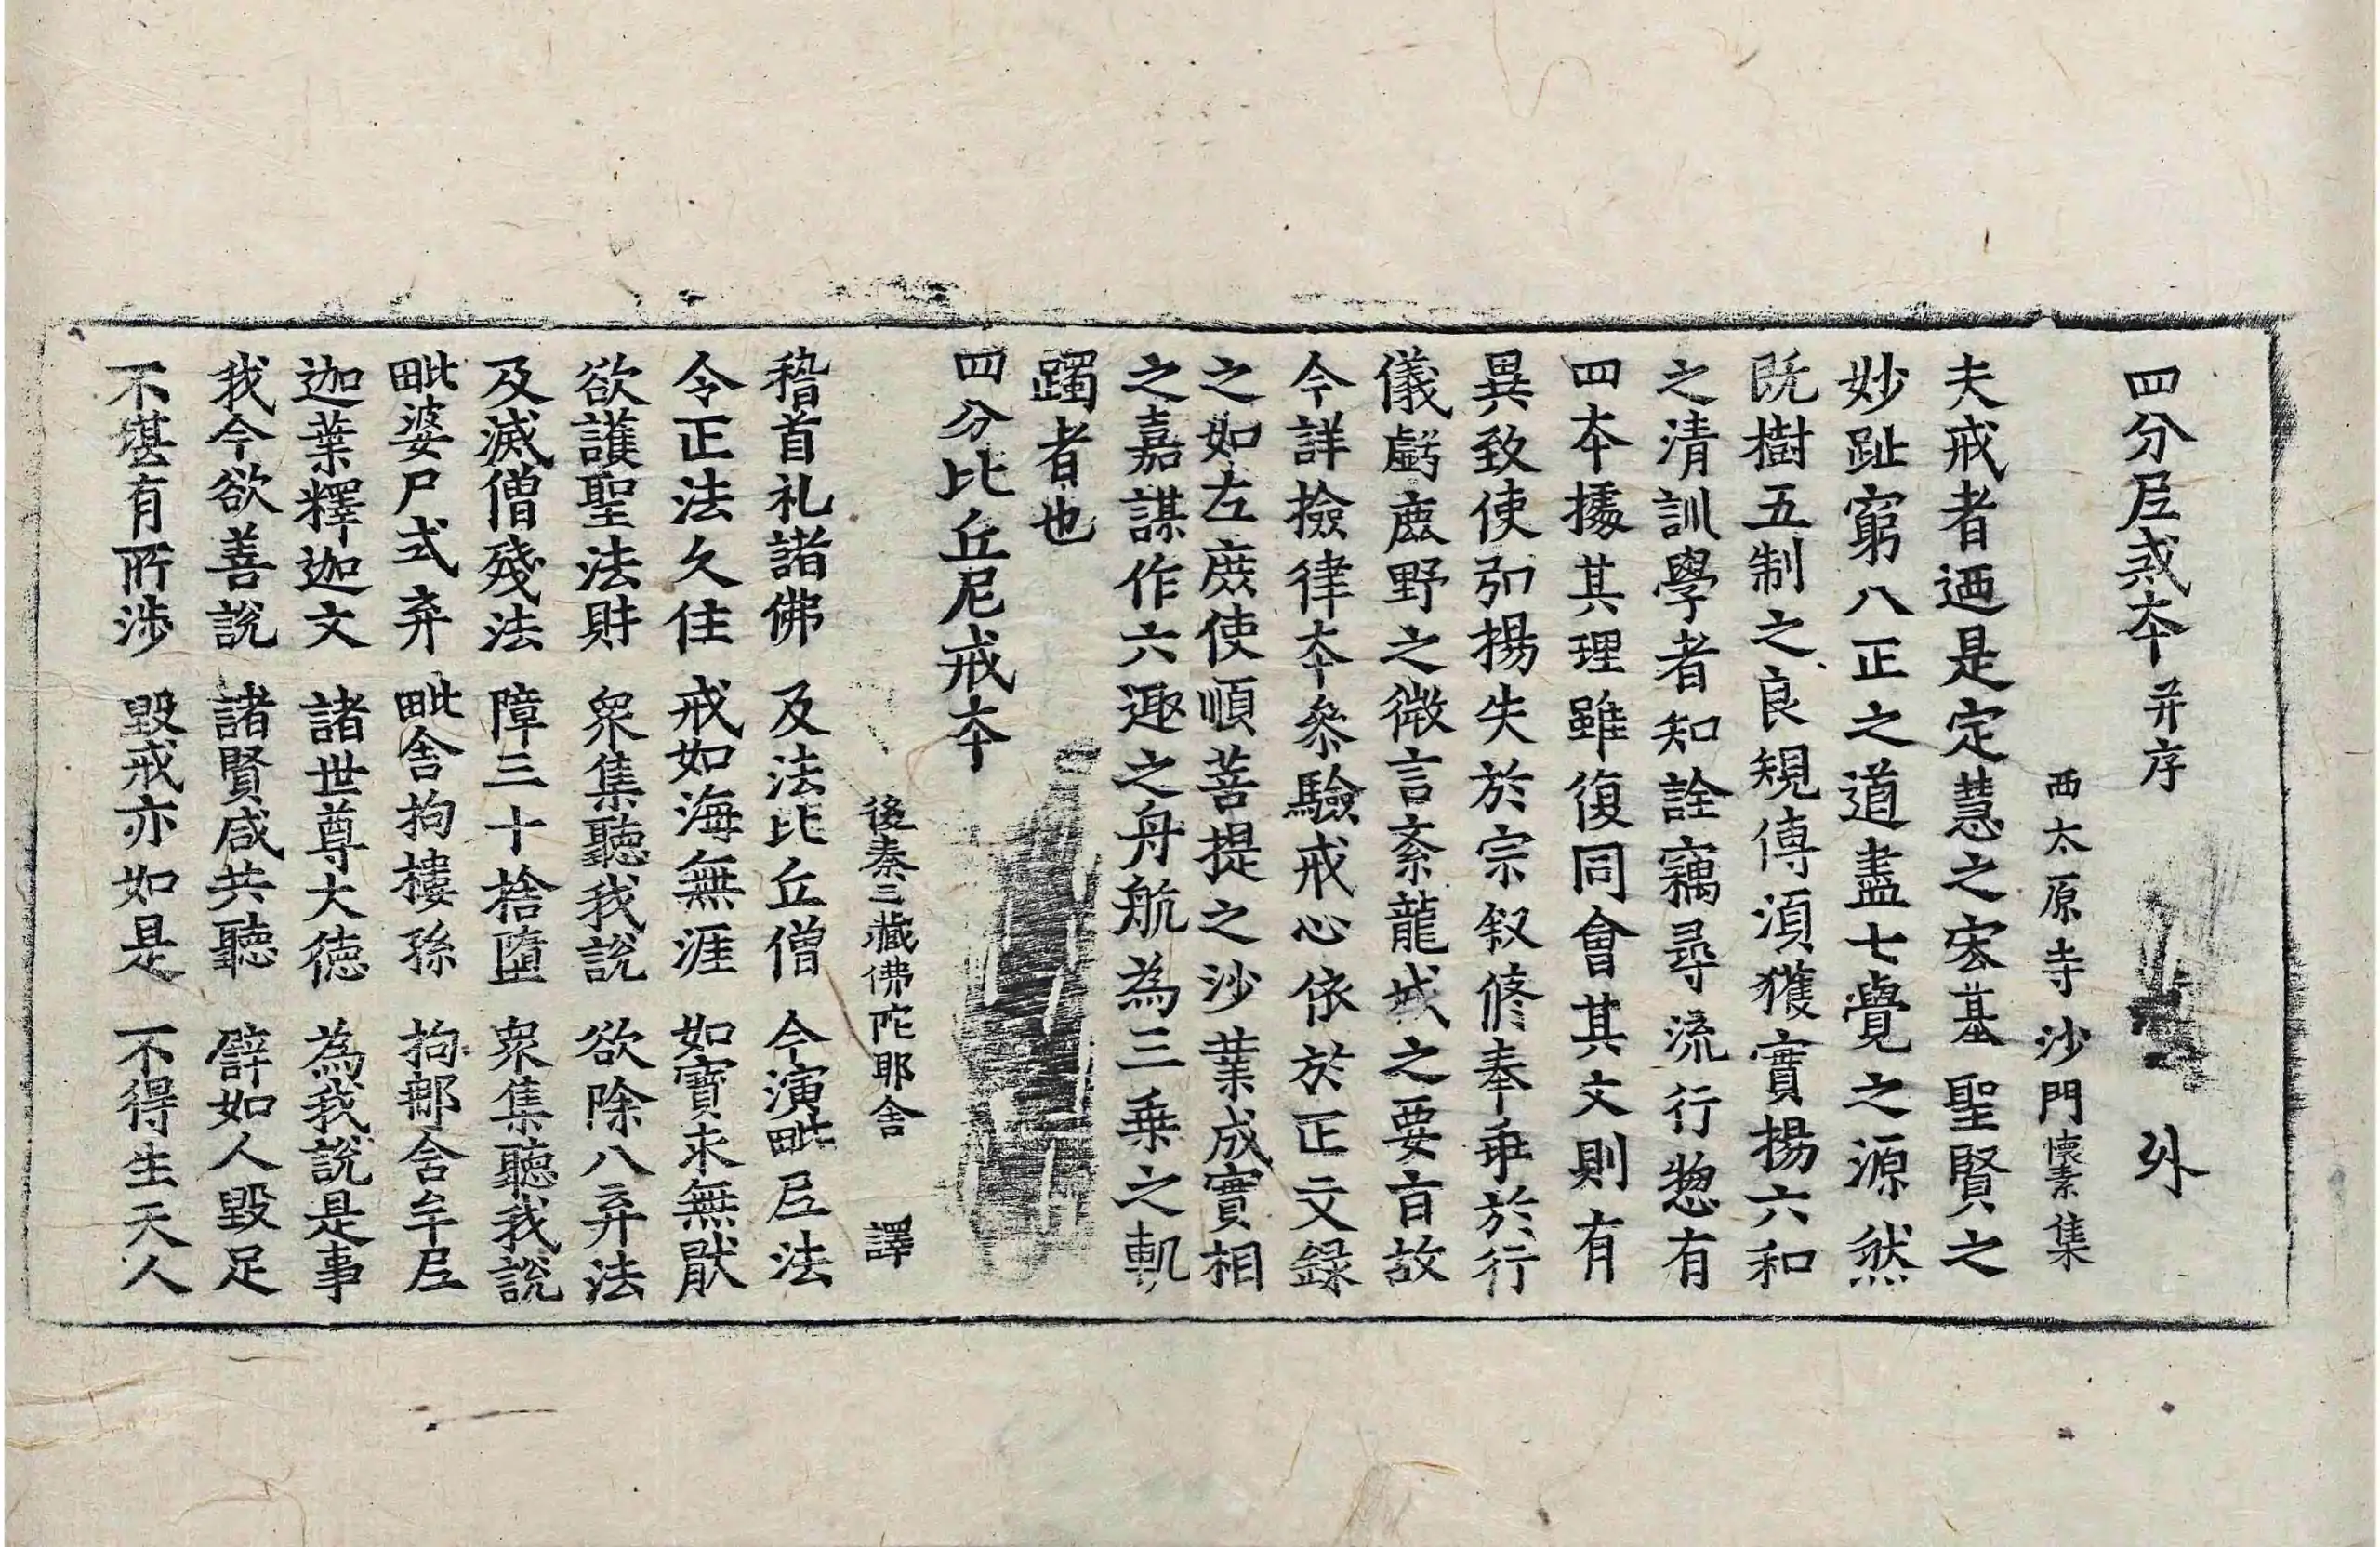 四分尼戒本 并序 外
西太原寺沙門懷素集
夫戒者迺是定慧之宏基聖賢之
妙趾窮八正之道盡七覺之源然
既樹五制之良規傳須獲實揚六和
之清訓學者知詮竊尋流行惣有
四夲據其理雖復同會其文則有
異致使弘揚失於宗叙修奉乖於行
儀虧鹿野之微言紊龍城之要旨故
今詳撿律夲參驗戒心依於正文錄
之如左庶使順菩提之沙業成實相
之嘉謀作六趣之舟航為三乗之軌
躅者也
四分比丘尼戒夲
後秦三藏佛陀耶舍 譯
稽首礼諸佛 及法比丘僧 今演毗尼法
令正法久住 戒如海無涯 如寶求無猒
欲護聖法財 衆集聽我説 欲除八弃法
及滅僧殘法 障三十捨墮 衆集聽我説
毗婆尸式弃 毗舍拘樓孫 拘那舍牟尼
迦葉釋迦文 諸世尊大德 為我説是事
我今欲善説 諸賢咸共聽 譬如人毀足
不堪有所涉 毀戒亦如是 不得生天人